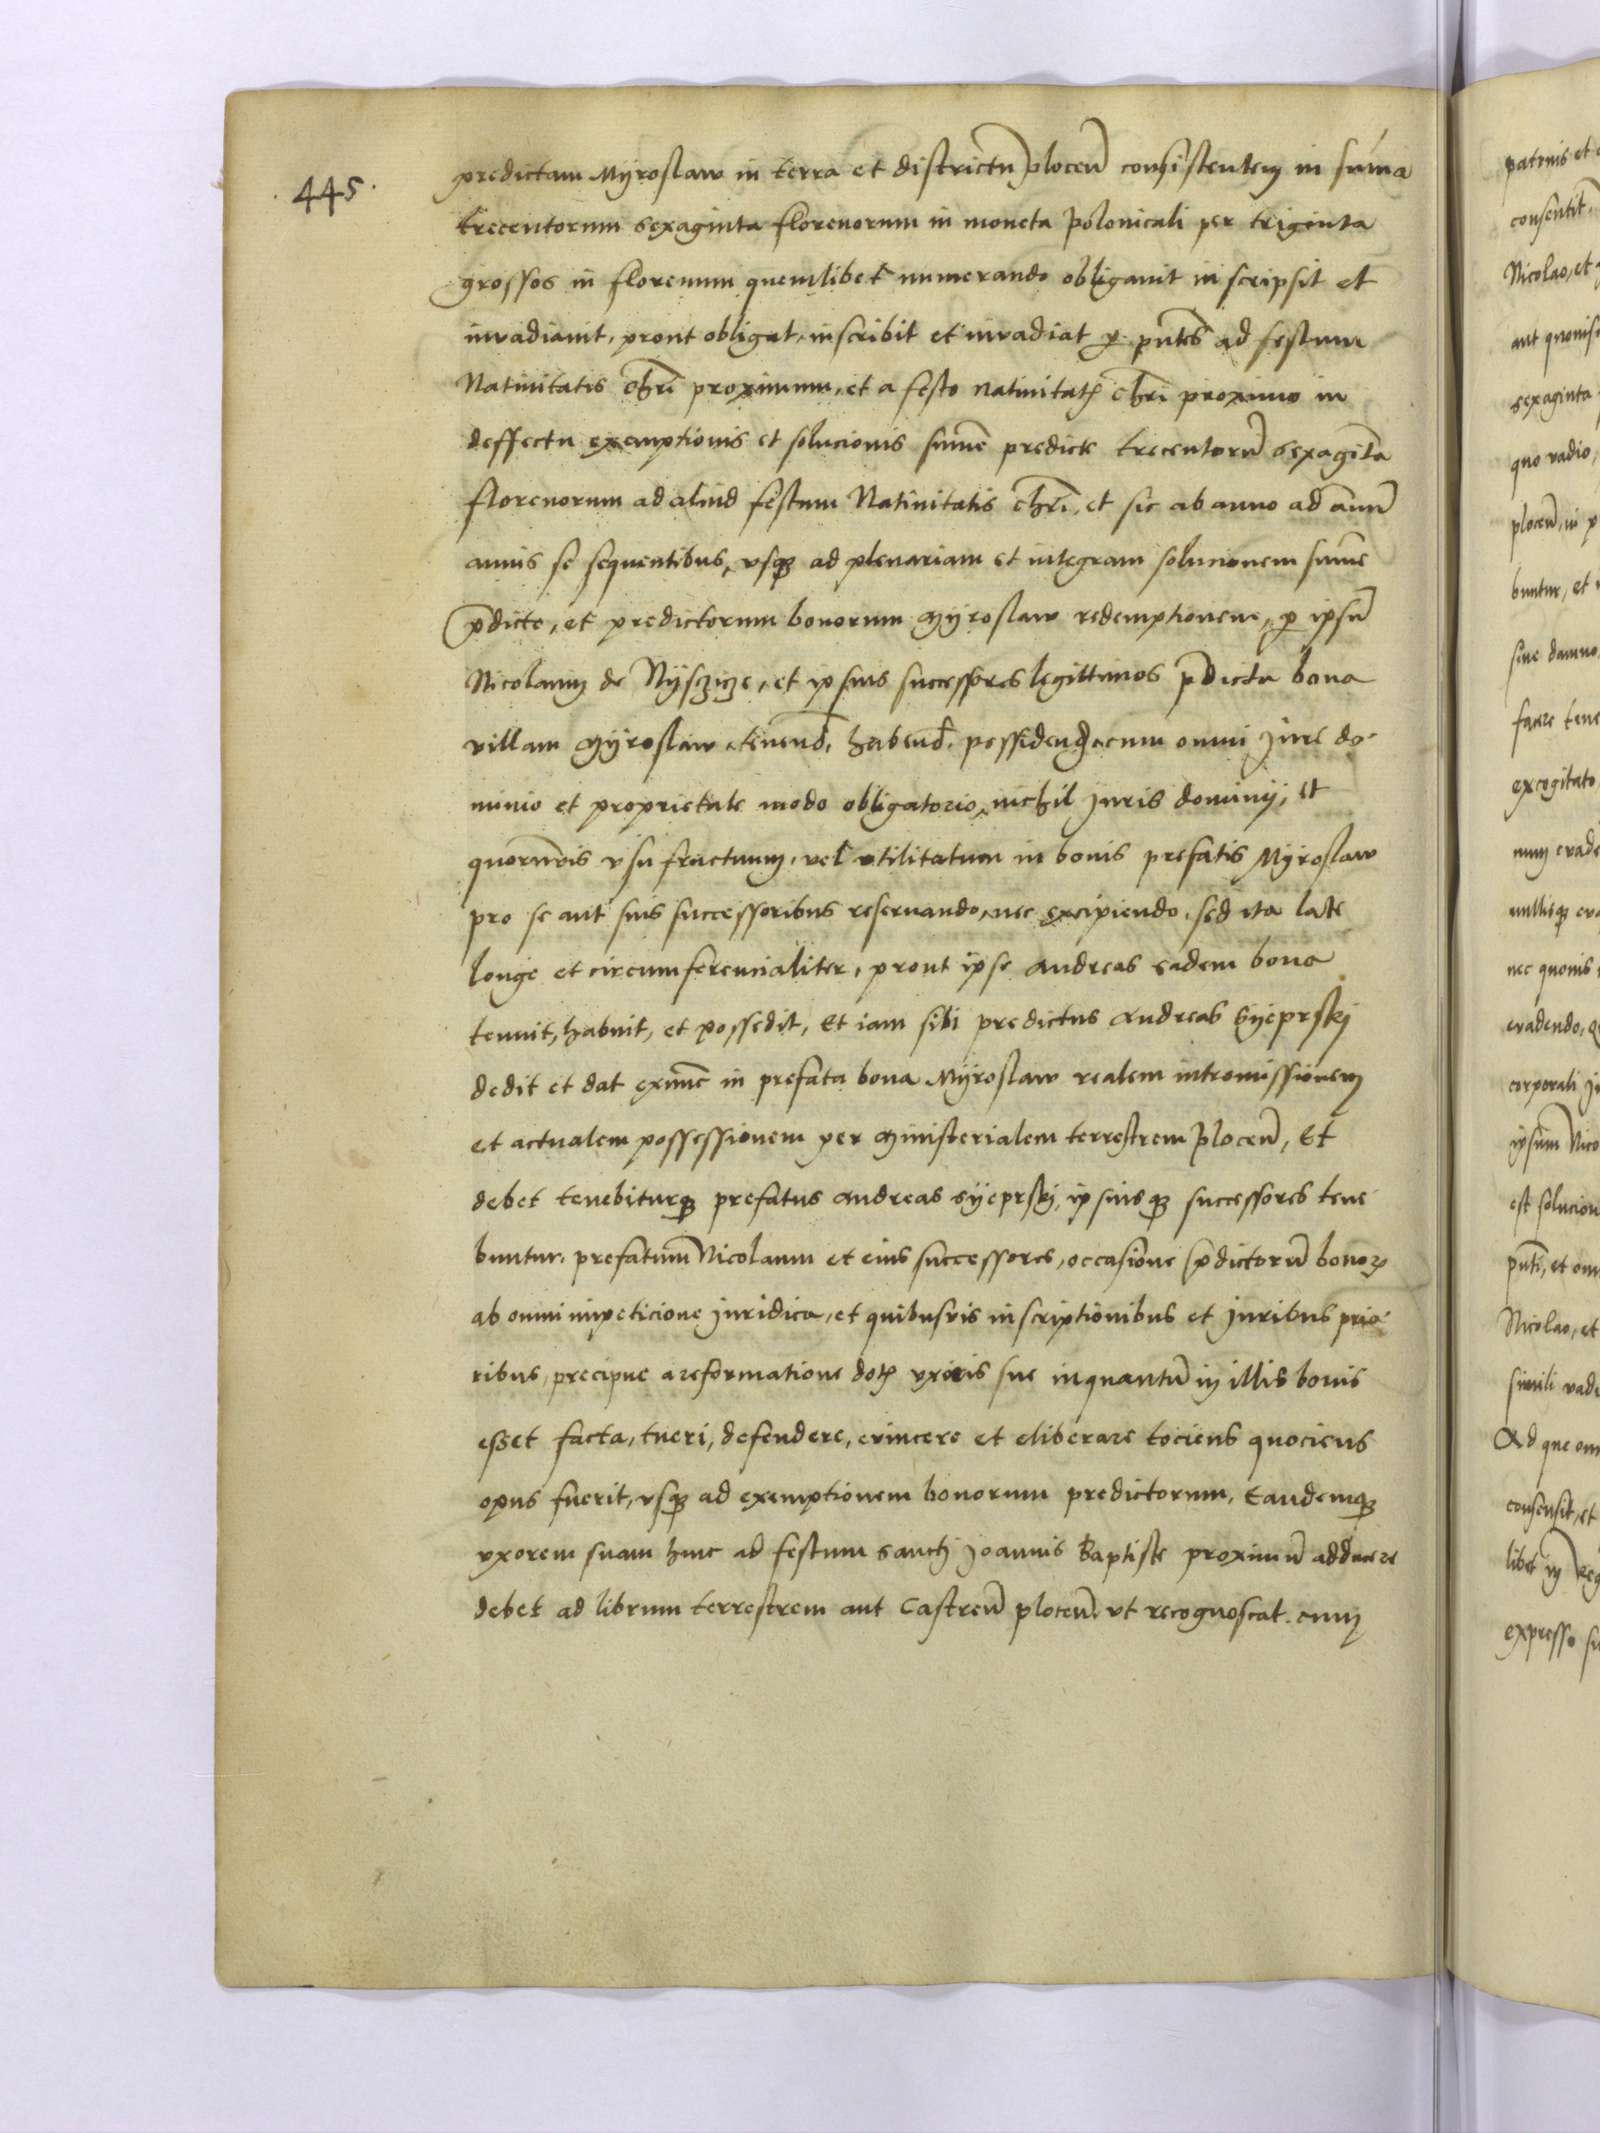 445.
predictam Myroslaw in terra et districtu plocen̄ consistentem in sum̄a
trecentorum sexaginta florenorum in moneta polonicali per triginta
grossos in florenum quemlibet numerando obligauit inscripsit et
inuadiauit, prout obligat, inscribit et inuadiat ꝑ pn̄tes ad festum
Natiuitatis chrī proximum, et a festo natiuitatꝭ chrī proximo in
deffectu exemptionis et solucionis summe predicte trecentorū sexaginta
florenorum ad aliud festum Natiuitatis chrī, et sic ab anno ad annū
annis se sequentibus, vsqꝫ ad plenariam et integram solucionem summe
p̄dicte, et predictorum bonorum Myroslaw redemptionem, ꝑ ipsū
Nicolaum de Nyszczycze, et ipsius successores legittimos p̄dicta bona
villam Myroslaw tenend̄, habend̄, possidend̄ cum omni jure do-
minio et proprietate modo obligatorio, nichil juris dominij, et
quorumvis vsufructuum, vel vtilitatum in bonis prefatis Myroslaw
pro se aut suis successoribus reseruando, nec excipiendo, sed ita late
longe et circumferencialiter, prout ipse Andreas eadem bona
tenuit, habuit, et possedit, Et iam sibi predictus Andreas Syeprskj
dedit et dat exnunc in prefata bona Myroslaw realem intromissionem
et actualem possessionem per Ministerialem terrestrem plocen̄, Et
debet tenebiturqꝫ prefatus Andreas Syeprskj, ipsiusqꝫ successores tene
buntur, prefatum Nicolaum et eius successores, occasione p̄dictorū bonoꝝ
ab omni impeticione juridica, et quibusuis inscriptionibus et juribus prio-
ribus, precipue a reformatione dotꝭ vxoris sue inquantū in illis bonis
esset facta, tueri, defendere, evincere et eliberare tociens quociens
opus fuerit, vsqꝫ ad exemptionem bonorum predictorum, Eandemqꝫ
vxorem suam hinc ad festum sanctj joannis Baptiste proximū adducere
debet ad librum terrestrem aut Castren̄ plocen̄, vt recognoscat cum